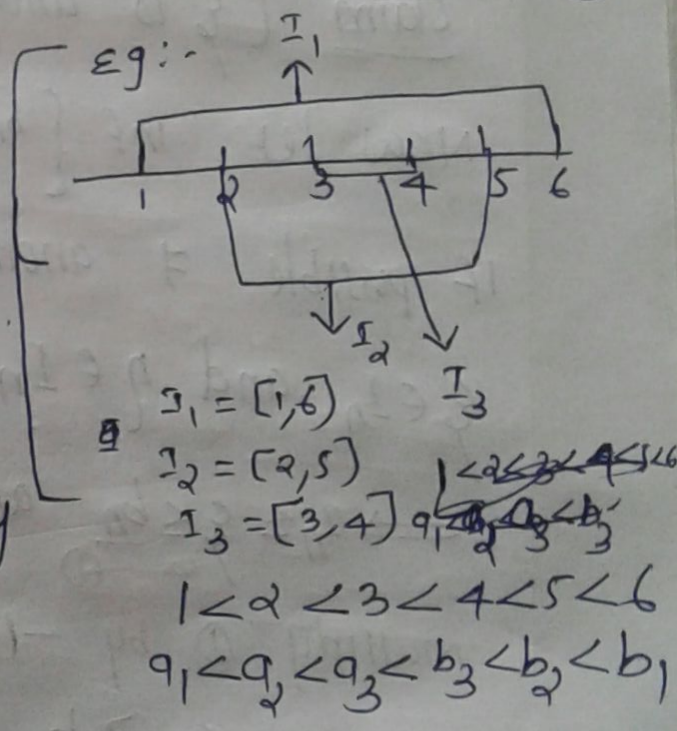 Eg:-
I₁
1 2 3 4 5 6
I₂
I₃
I₁ = [1,6)
I₂ = [2,5)
I₃ = [3,4]
1<2<3<4<5<6
a₁<a₂<a₃<b₃<b₂<b₁